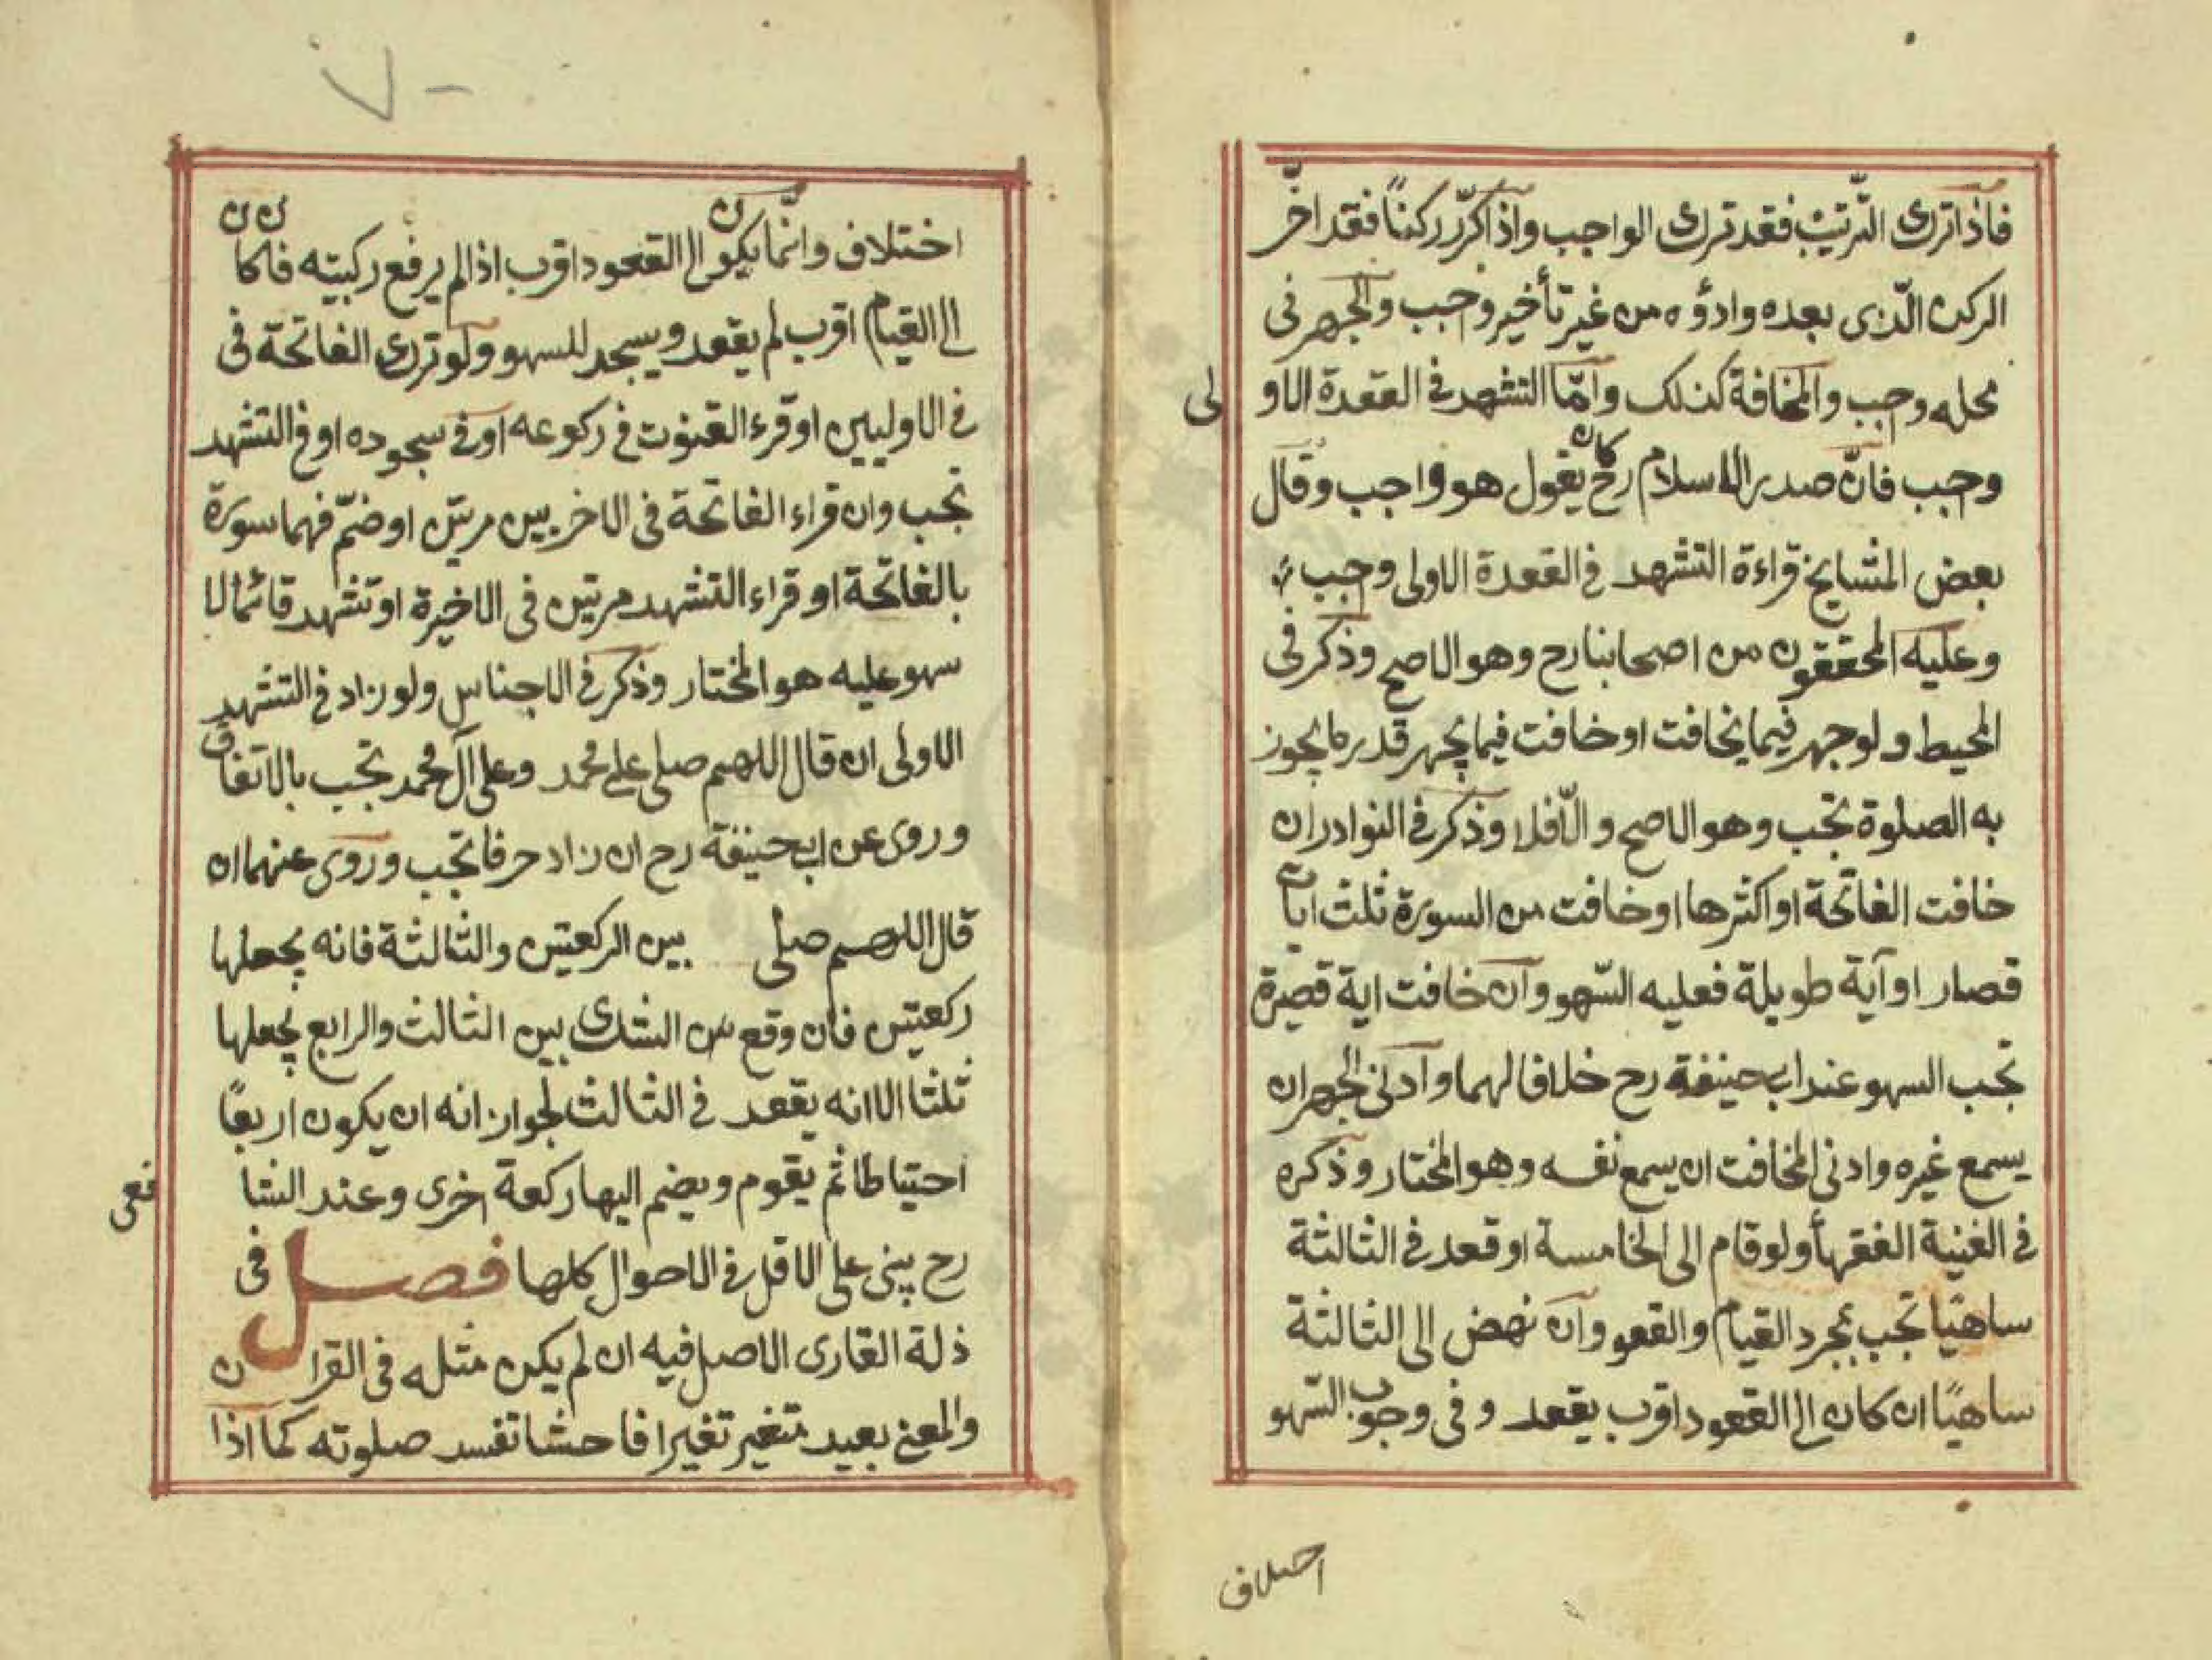 فاذا ترك الترتيب فقد ترك الواجب واذا كرّر ركنًا فقد اخّر
الركن الّذى بعده واداؤه من غير تأخير وجب والجهر فى
محله وجب والمخافة كذلك وامّا التشهد فى القعدة الاولى
وجب فانّ صدر الاسلام رح كان يقول هو واجب وقال
بعض المشايخ قراءة التشهد فى القعدة الاولى وجب
وعليه المحققون من اصحابنا رح وهو الاصح وذكر فى
المحيط ولو جهر فيما يخافت او خافت فيما يجهر قدر ما يجوز
به الصلوة تجب وهو الاصح والّا فلا وذكر فى النوادر ان
خافت الفاتحة او اكثرها او خافت من السورة ثلث ايات
قصار او آية طويلة فعليه السّهو وان خافت اية قصيرة
تجب السهو عند ابيحنيفة رح خلافا لهما وادنى الجهر ان
يسمع غيره وادنى المخافت ان يسمع نفسه وهو المختار وذكره
فى الغنية الفقهأ ولو قام الى الخامسة او قعد فى الثالثة
ساهيًا تجب بمجرد القيام والقعو وان نهض الى الثالثة
ساهيًا ان كان الى القعود اقرب يقعد وفى وجوب السّهو
اختلاف
٧٠
اختلاف وانّما يكون الى القعود اقرب اذا لم يرفع ركبيته فان كان
الى القيام اقرب لم يقعد ويسجد للسهو ولو ترك الفاتحة فى
فى الاوليين او قرء القنوت فى ركوعه او فى سجوده او فى التشهد
تجب وان قراء الفاتحة فى الاخريين مرتين او ضمّ فهما سورة
بالفاتحة او قراء التشهد مرتين فى الاخيرة او تشهد قائما لا
سهو عليه هو المختار وذكر فى الاجناس ولو زاد فى التشهد
الاولى ان قال اللهم صلى على محمد وعلى آل محمد تجب بالاتفاق
وروى عن ابيحنيفة رح ان زاد حرفا تجب وروى عنهما ان
قال اللهم صلى بين الركعتين والثالثة فانه يجعلها
ركعتين فان وقع من الشك بين الثالث والرابع يجعلها
ثلثا الا انه يقعد فى الثالث لجواز انه ان يكون اربعًا
احتياطا ثم يقوم ويضم اليها ركعة اخرى وعند الشافعى
رح يبنى على الاقل فى الاحوال كلها فصل فى
ذلة القارى الاصل فيه ان لم يكن مثله فى القران
والمعنى بعيد متغير تغيرا فاحشا تفسد صلوته كما اذا